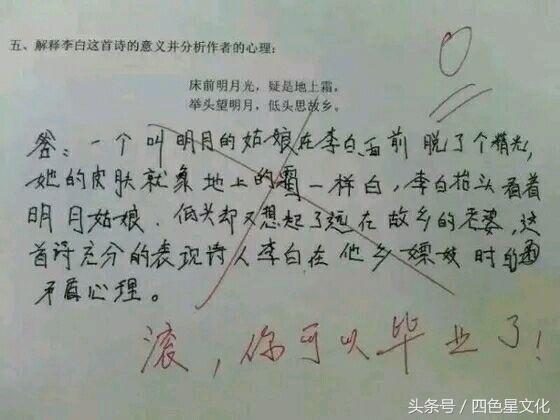 五、解释李白这首诗的意义并分析作者的心理:
床前明月光，疑是地上霜，
举头望明月，低头思故乡。
0
答：一个叫明月的姑娘在李白面前脱了个精光，
她的皮肤就象地上的霜一样白，李白抬头看着
明月姑娘．低头却又想起了远在故乡的老婆，这
首诗充分的表现诗人李白在他乡嫖妓时的
矛盾心理。
滚，你可以毕业了!
头条号／四色星文化